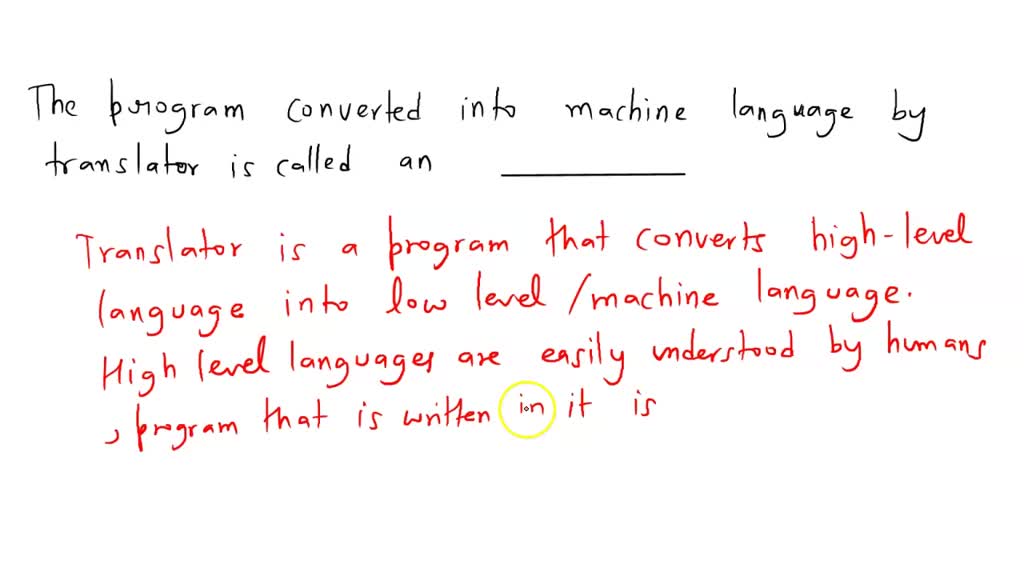 The program converted into machine language by
translator is called an ________
Translator is a program that converts high-level
language into low level /machine language.
High level languages are easily understood by humans
, program that is written in it is